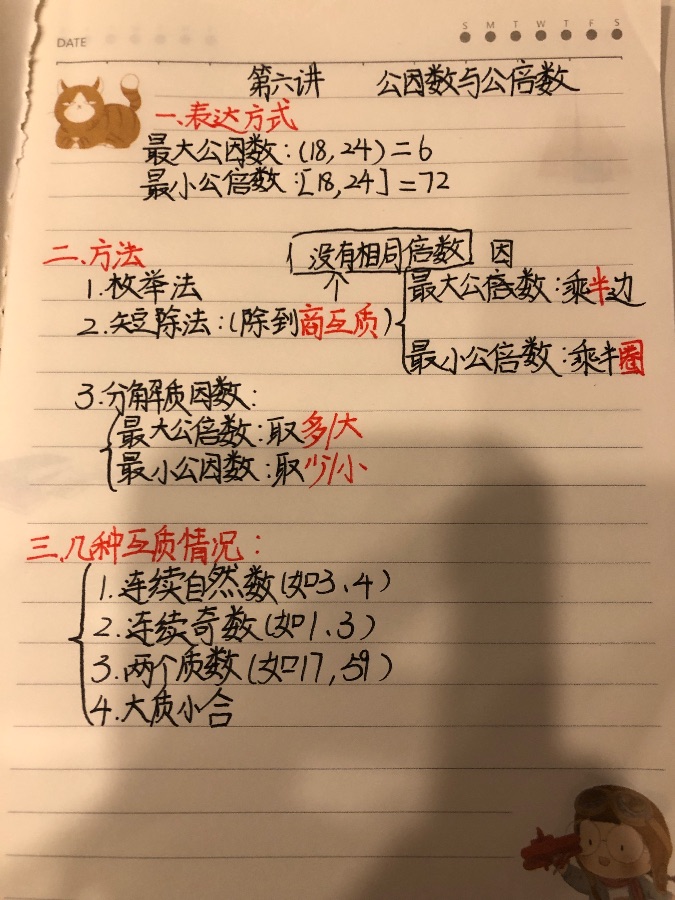 DATE
S M T W T F S
第六讲 公因数与公倍数
一、表达方式
最大公因数:(18,24)=6
最小公倍数:[18,24]=72
二、方法
没有相同倍数 因
1.枚举法
最大公倍数:乘半边
2.短除法:(除到商互质)
最小公倍数:乘半圈
3.分解质因数:
最大公倍数:取多/大
最小公因数:取少/小
三、几种互质情况:
1.连续自然数(如3、4)
2.连续奇数(如1、3)
3.两个质数(如17,59)
4.大质小合